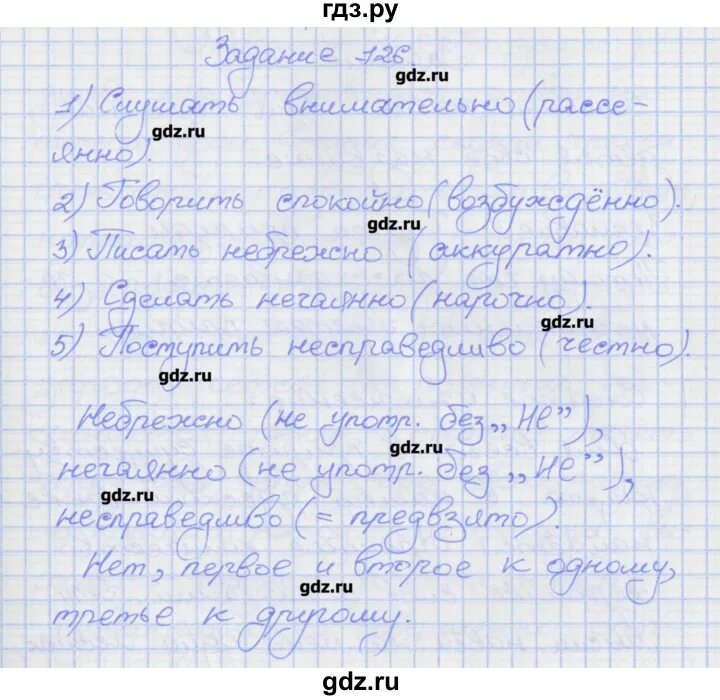 гдз.ру
Задание 126.
gdz.ru
1) Слушать внимательно (рассе-
gdz.ru
янно).
2) Говорить спокойно (возбуждённо).
gdz.ru
3) Писать небрежно (аккуратно).
4) Сделать нечаянно (нарочно).
gdz.ru
5) Поступить несправедливо (честно).
gdz.ru
Небрежно (не употр. без „Не”),
gdz.ru
нечаянно (не употр. без „Не”),
gdz.ru
несправедливо (= предвзято).
Нет, первое и второе к одному,
gdz.ru
третье к другому.
gdz.ru